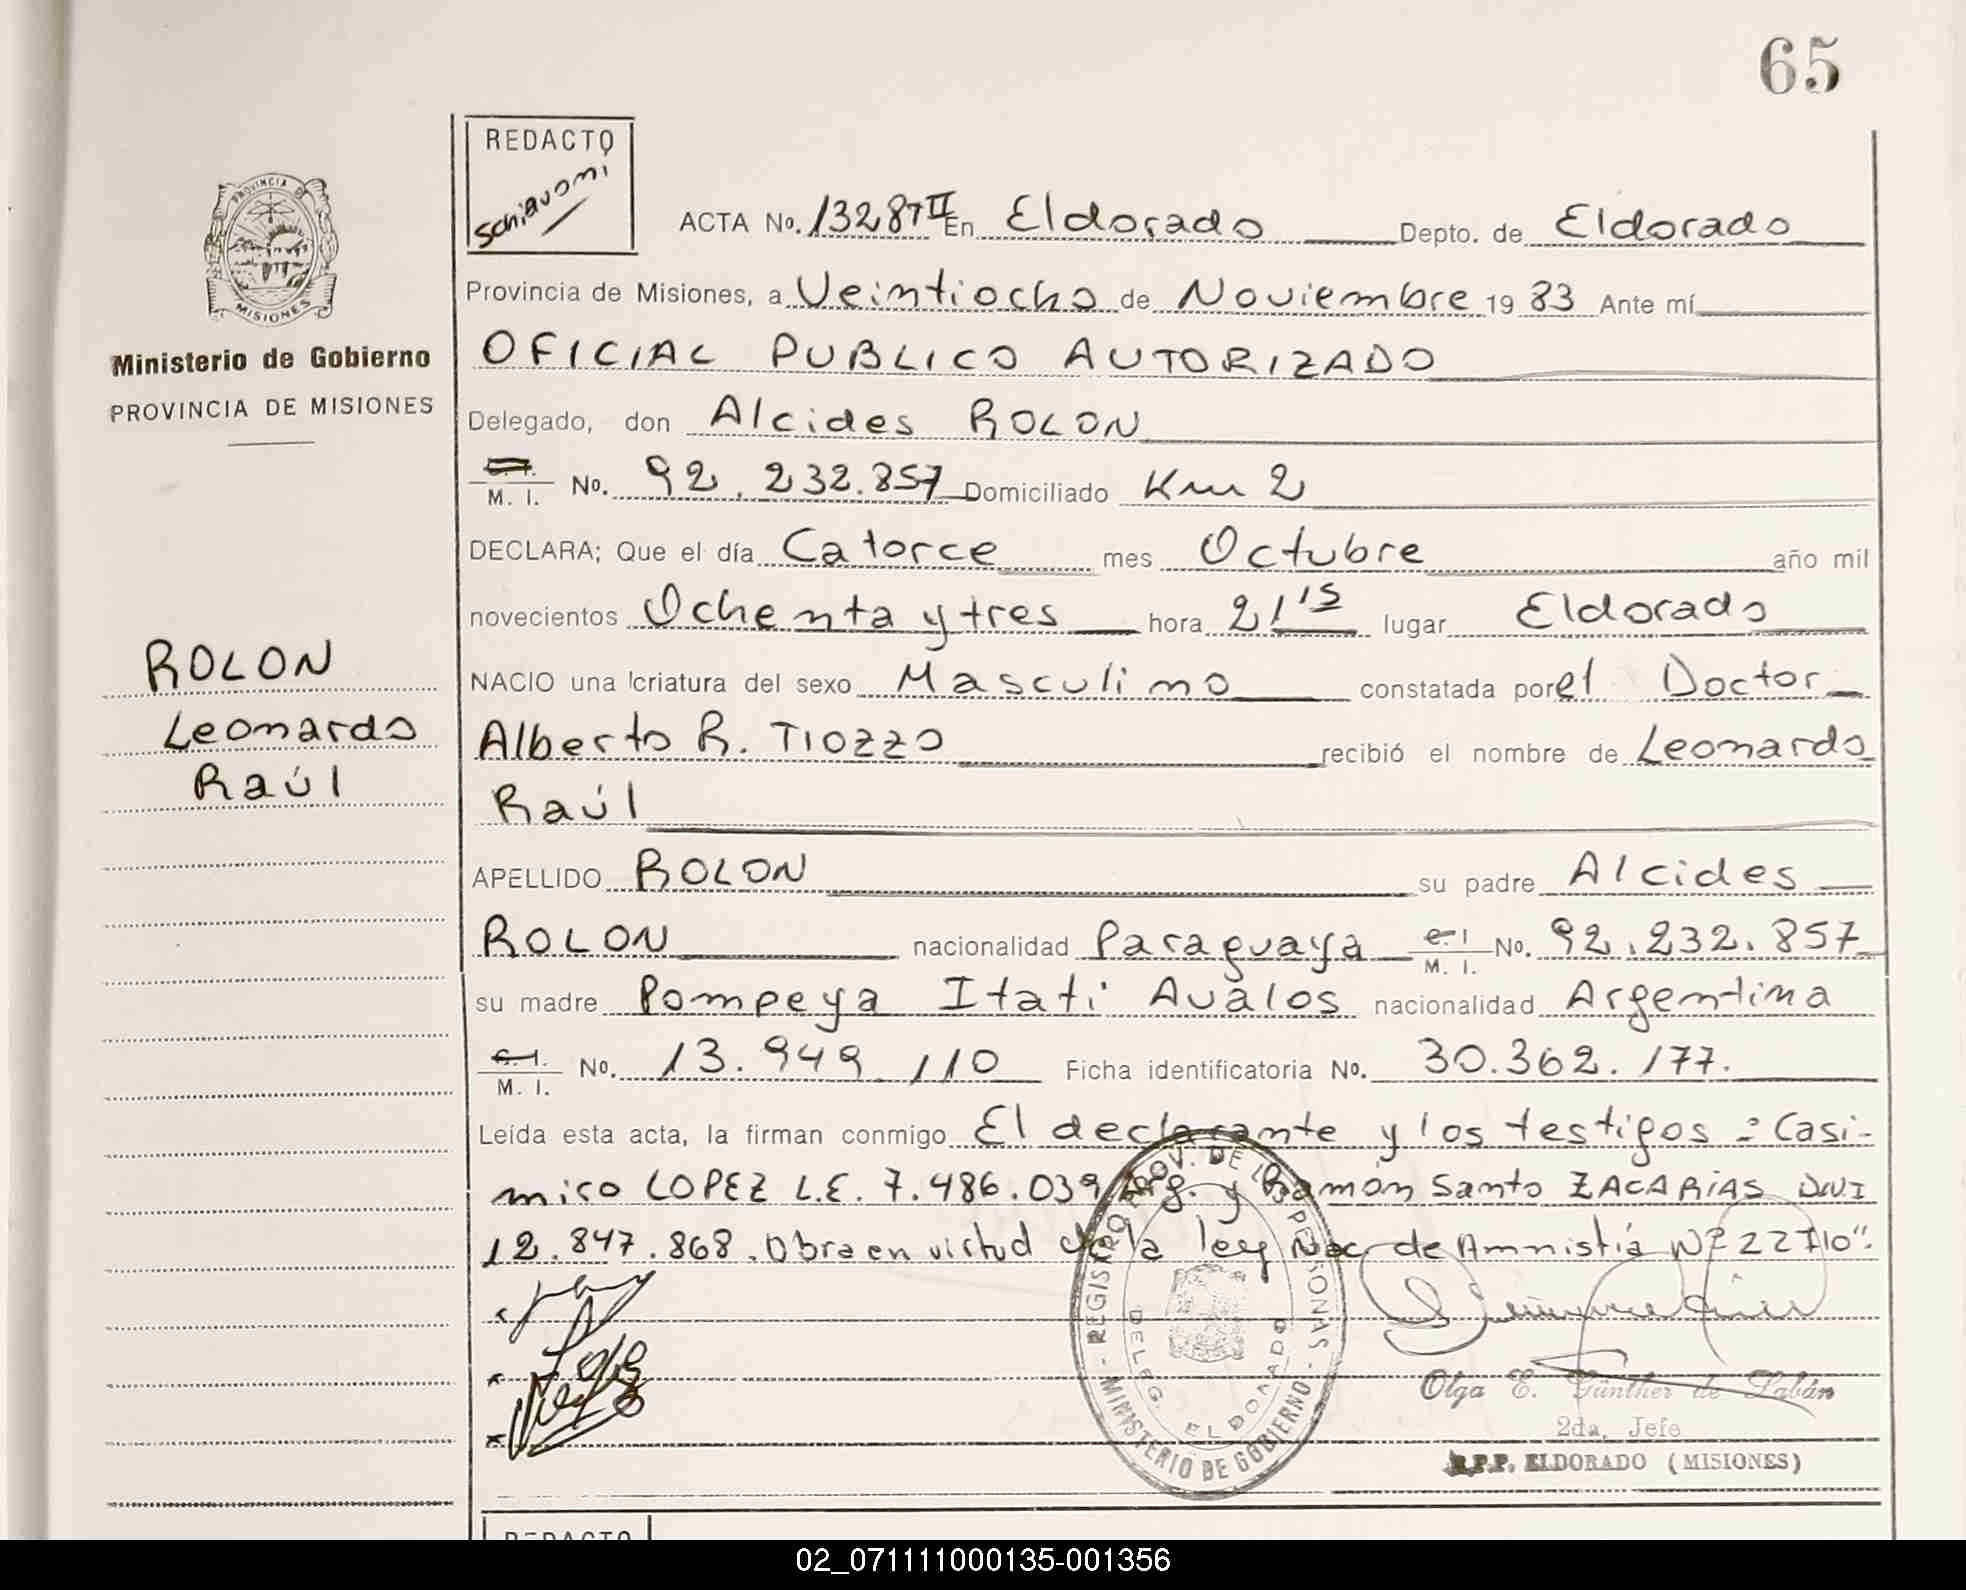 65
REDACTO
Schiavoni
PROVINCIA DE
MISIONES
Ministerio de Gobierno
PROVINCIA DE MISIONES
ROLON
Leonardo
Raúl
ACTA No. 1328 TII En Eldorado Depto. de Eldorado
Provincia de Misiones, a Veintiocho de Noviembre 19 83 Ante mí
OFICIAL PUBLICO AUTORIZADO
Delegado, don Alcides ROLON
M. I. No. 92.232.857 Domiciliado Km 2
DECLARA; Que el día Catorce mes Octubre año mil
novecientos Ochenta y tres hora 21'15 lugar Eldorado
NACIO una criatura del sexo Masculino constatada por el Doctor
Alberto R. TIOZZO recibió el nombre de Leonardo
Raúl
APELLIDO ROLON su padre Alcides
ROLON nacionalidad Paraguaya C. I. M. I. No. 92.232.857
su madre Pompeya Itatí Avalos nacionalidad Argentina
C. I. M. I. No. 13.949.110 Ficha identificatoria No. 30.362.177.
Leída esta acta, la firman conmigo El declarante y los testigos = Casi-
miro LOPEZ L.E. 7.486.039 Arg. y Ramón Santo ZACARIAS DNI
12.847.868. Obra en virtud de la ley Nac de Amnistía Nº 22710".
REGISTRO PROV. DE LAS PERSONAS - MINISTERIO DE GOBIERNO -
DELEG. ELDORADO
Olga E. Günther de Labán
2da. Jefe
R.P.P. ELDORADO (MISIONES)
REDACTO
02_071111000135-001356